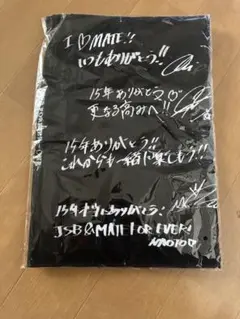 I♡MATE!!
いつもありがとう!!
15年ありがとう♡
更なる高みへ!!
15年ありがとう!!
これからも一緒に楽しもう!!
15年本当にありがとう!
JSB&MATE FOR EVER!
NAOTO